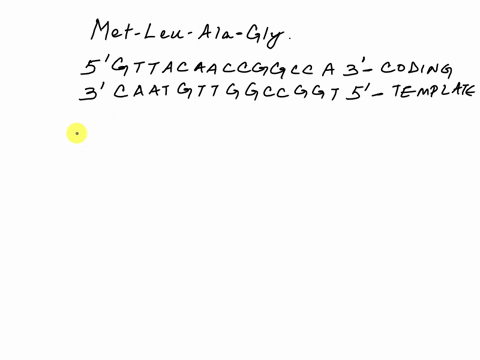 Met-Leu-Ala-Gly.
5' G T T A C A A C C G G C C A 3' - CODING
3' C A A T G T T G G C C G G T 5' - TEMPLATE